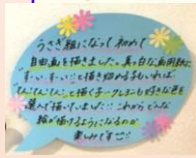 うさぎ組になって初めて
自由画を描きました。真っ白な画用紙に
"すーい、すーい"と描き始める子もいれば、
"てん!てん!てん!"と描く子…クレヨンも好きな色を
選んで描いていました!!これからどんな
絵が描けるようになるのか
楽しみです